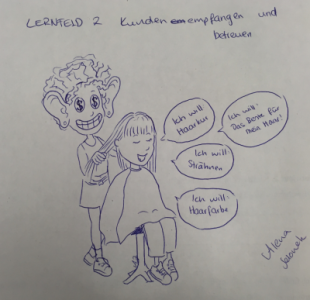 LERNFELD 2 Kunden empfangen und
betreuen
Ich will
Haarkur
Ich will
Das Beste für
mein Haar!
Ich will
Strähnen
Ich will
Haarfarbe
Alena